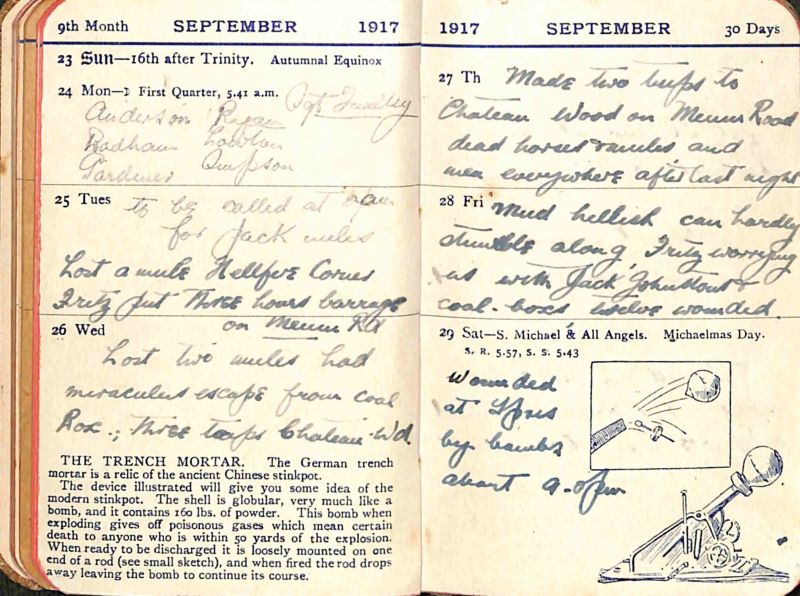 9th Month SEPTEMBER 1917
23 Sun—16th after Trinity. Autumnal Equinox
24 Mon—☽ First Quarter, 5.41 a.m.
Anderson Regan Sgt
Badham Lowton
Gardiner Simpson
25 Tues to be called at
for Jack mules
Lost a mule Hellfire Corner
Fritz put three hours barrage
on Menin Rd
26 Wed
Lost two mules had
miraculus escape from coal
Box.; three trips Chateau Wd
THE TRENCH MORTAR. The German trench
mortar is a relic of the ancient Chinese stinkpot.
The device illustrated will give you some idea of the
modern stinkpot. The shell is globular, very much like a
bomb, and it contains 160 lbs. of powder. This bomb when
exploding gives off poisonous gases which mean certain
death to anyone who is within 50 yards of the explosion.
When ready to be discharged it is loosely mounted on one
end of a rod (see small sketch), and when fired the rod drops
away leaving the bomb to continue its course.
1917 SEPTEMBER 30 Days
27 Th Made two trips to
Chateau Wood on Menin Road
dead horses & mules and
men everywhere after last night
28 Fri Mud hellish can hardly
stumble along, Fritz worrying
us with Jack Johnstons &
coal-boxes twelve wounded.
29 Sat—S. Michael & All Angels. Michaelmas Day.
S. R. 5.57, S. S. 5.43
Wounded
at Ypres
by bombs
about 9.0 pm